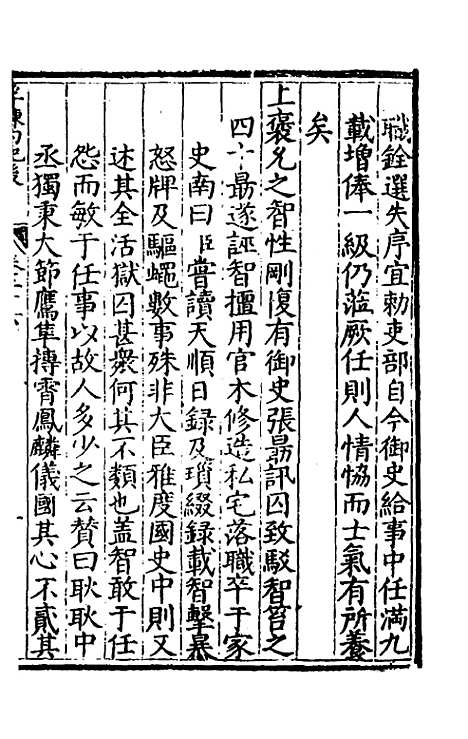 職銓選失序宜勑吏部自今御史給事中任滿九
載增俸一級仍蒞厥任則人情恊而士氣有所養
矣
上褒允之智性剛愎有御史張勗訊囚致駁智笞之
四十勗遂誣智擅用官木修造私宅落職卒于家
史南曰臣嘗讀天順日録及瑣綴録載智擊暴
怒牌及驅蠅數事殊非大臣雅度國史中則又
述其全活獄囚甚衆何其不類也盖智敢于任
怨而敏于任事以故人多少之云贊曰耿耿中
丞獨秉大節鷹隼摶霄鳳麟儀國其心不貳其